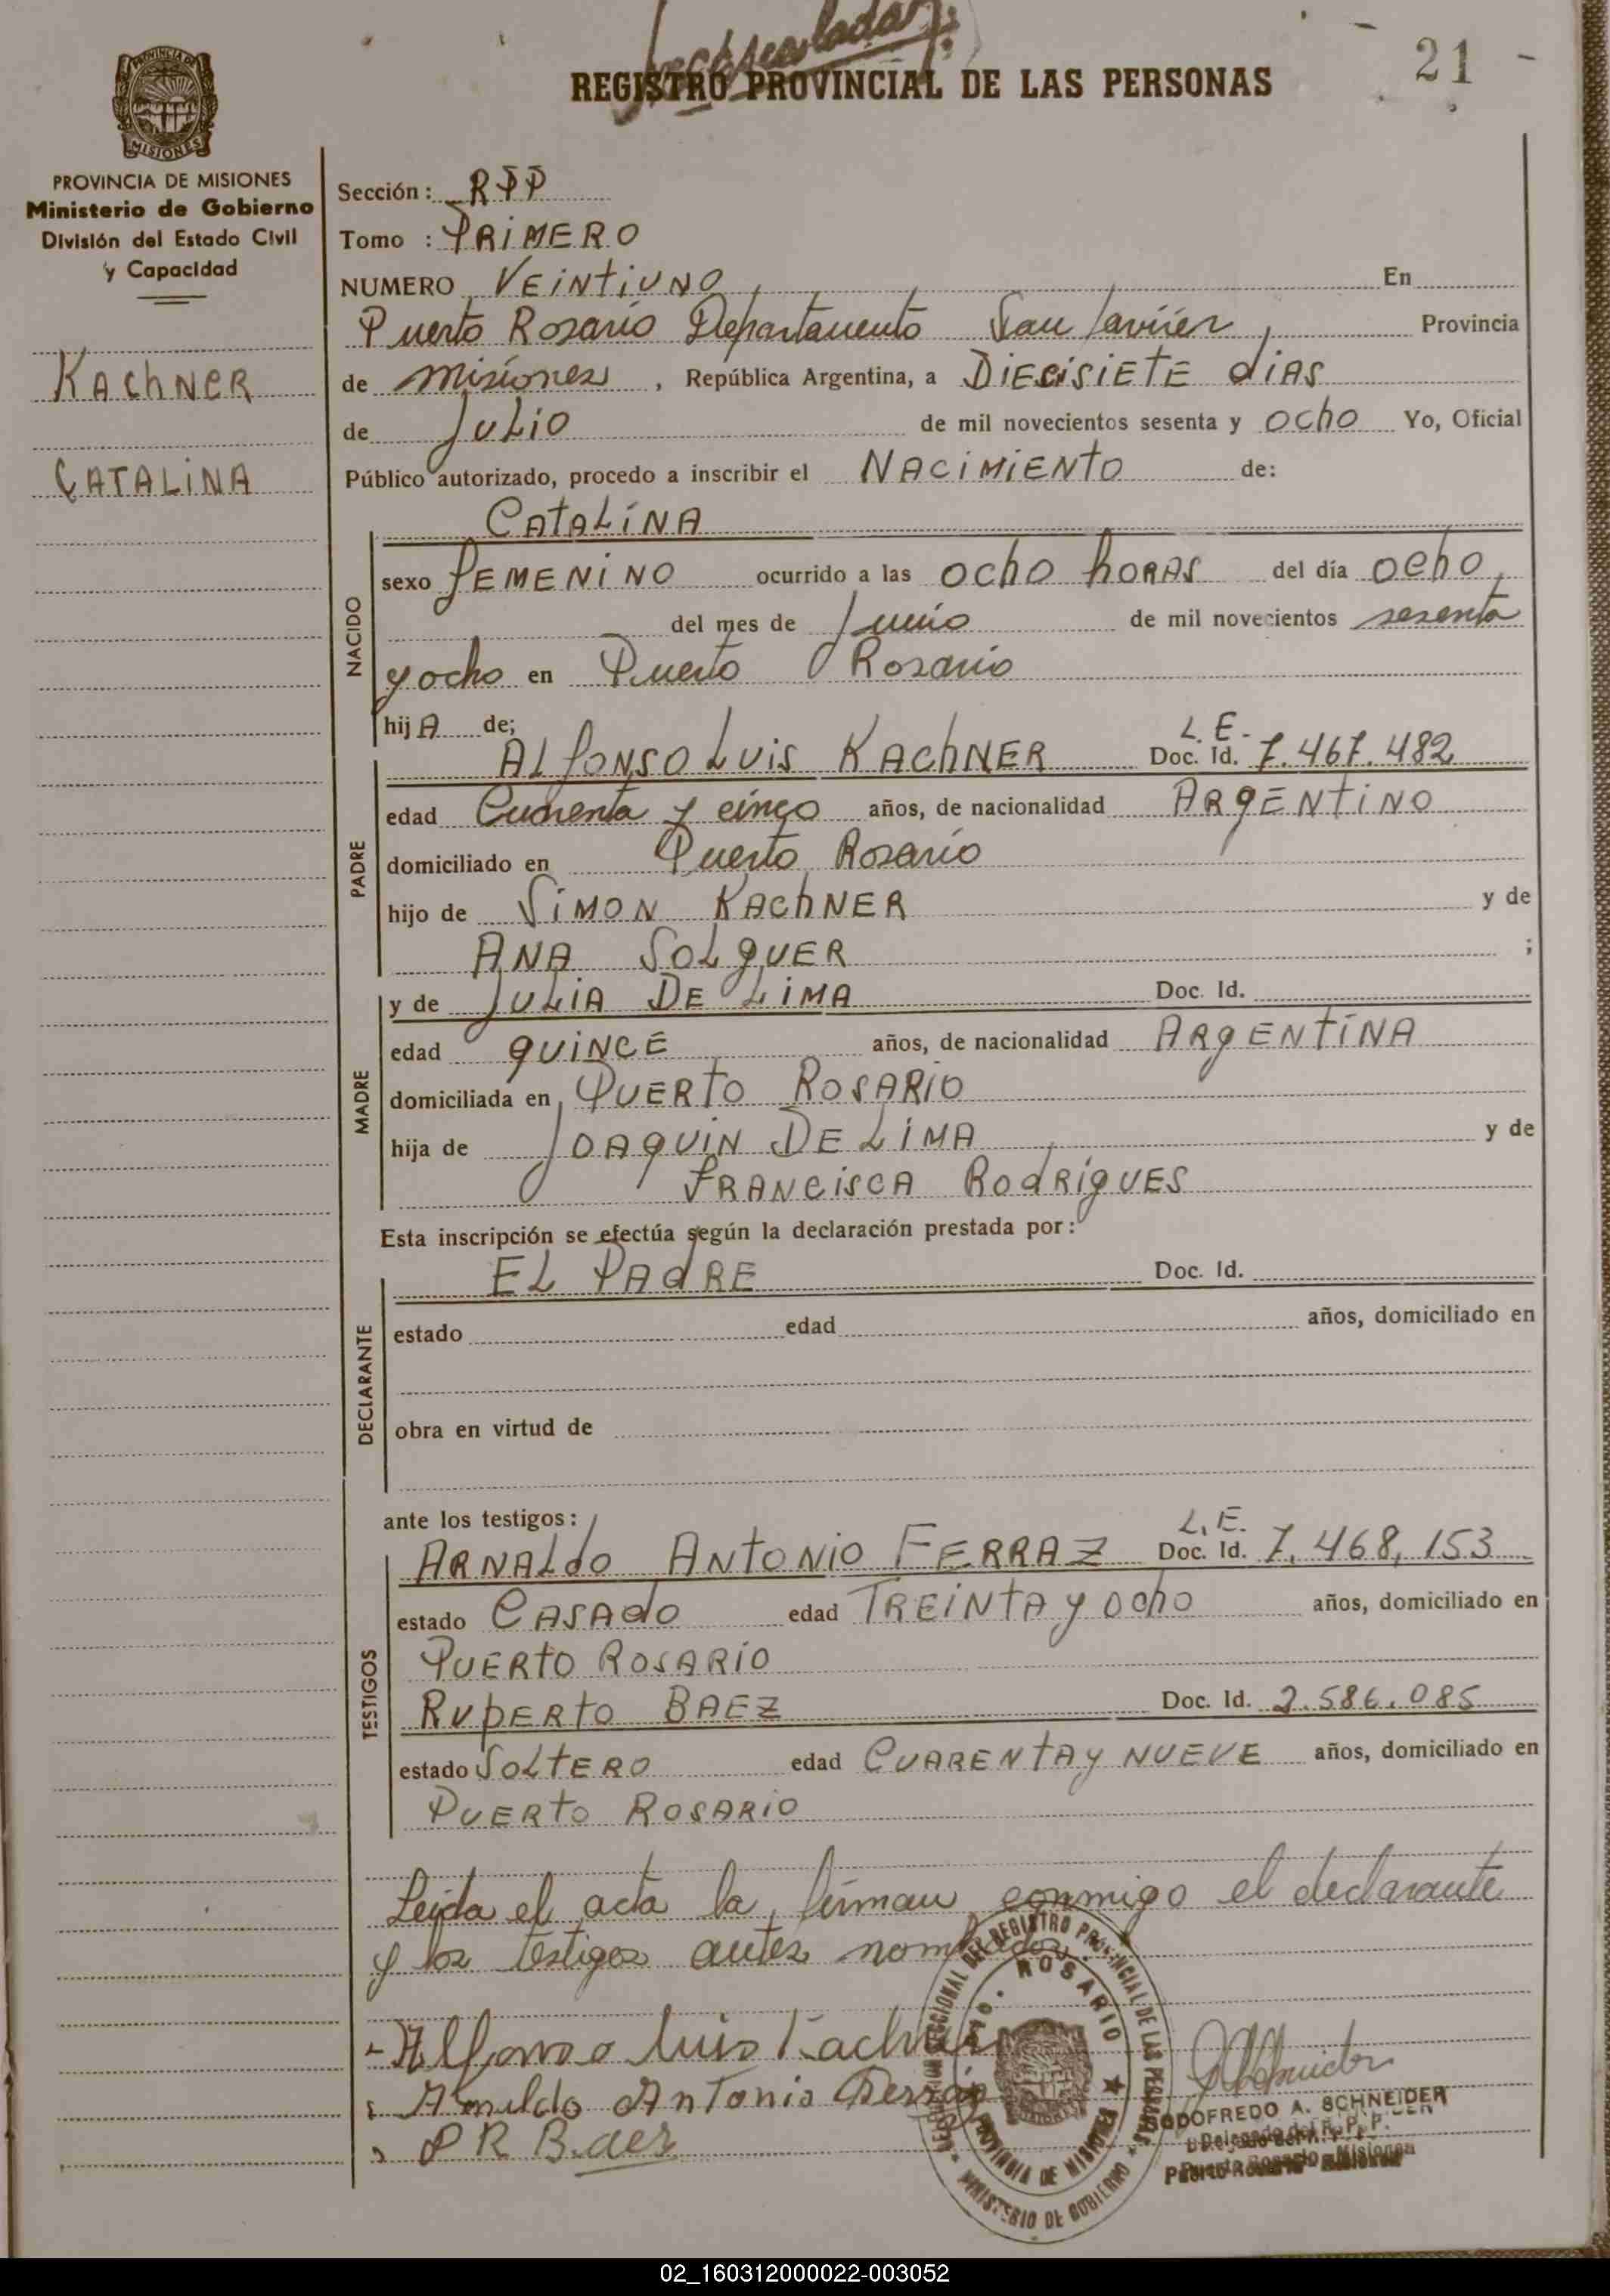 21 -
REGISTRO PROVINCIAL DE LAS PERSONAS
MISIONES
PROVINCIA DE MISIONES
Ministerio de Gobierno
División del Estado Civil
y Capacidad
KAChNER
CATALiNA
Sección: RPP
Tomo : PRiMERO
NUMERO VEiNtiUNO En
Puerto Rosario Departamento San Javiier, Provincia
de misiones, República Argentina, a DiECiSiETE diAS
de JuLiO de mil novecientos sesenta y ocho Yo, Oficial
Público autorizado, procedo a inscribir el NACiMiENto de:
CAtALiNA
NACIDO
sexo fEMENiNO ocurrido a las ocho hoRAS del día ocho,
del mes de Junio de mil novecientos sesenta
y ocho en Puerto Rosario
hijA de;
PADRE
ALfONSO LUiS KAChNER L. E. Doc. Id. 7.467.482
edad Cuarenta y cinco años, de nacionalidad ARgENtiNO
domiciliado en Puerto Rosario
hijo de SiMON KAChNER y de
ANA SOLgUER ;
MADRE
y de JULiA DE LiMA Doc. Id.
edad qUiNCE años, de nacionalidad ARgENtiNA
domiciliada en PUERTO ROSARiO
hija de JOAqUiN DE LiMA y de
FRANCiSCA RodRigUES
Esta inscripción se efectúa según la declaración prestada por:
DECLARANTE
EL PAdRE Doc. Id.
estado edad años, domiciliado en
obra en virtud de
ante los testigos:
TESTIGOS
ARNALdo ANtONiO FERRAZ L. E. Doc. Id. 7,468,153
estado CASAdo edad TREiNTA y ocho años, domiciliado en
PUERtO ROSARiO
RUpERtO BAEZ Doc. Id. 2.586.085
estado SOLTERO edad CUARENTA y NUEVE años, domiciliado en
PUERtO ROSARiO
Leida el acta la firman conmigo el declarante
y los testigos antes nombrados.
- Alfonso Luis Kachner
Arnildo Antonio Ferraz
P R Baez
DEL REGISTRO PROVINCIAL DE LAS PERSONAS
MINISTERIO DE GOBIERNO
ROSARIO
PROVINCIA DE MISIONES
GODOFREDO A. SCHNEIDER
Delegado del R. P. P.
Puerto Rosario - Misiones
02_160312000022-003052